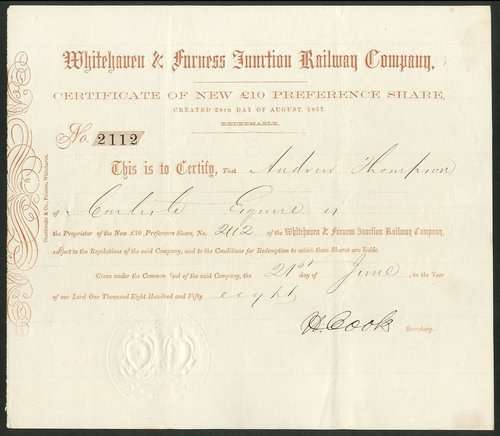 Whitehaven & Furness Junction Railway Company,
CERTIFICATE OF NEW £10 PREFERENCE SHARE,
CREATED 28TH DAY OF AUGUST, 1857.
REDEEMABLE.
No. 2112
This is to Certify, That Andrew Thompson
of Carlisle Esquire is
the Proprietor of the New £10 Preference Share, No. 2112 of the Whitehaven & Furness Junction Railway Company,
subject to the Regulations of the said Company, and to the Conditions for Redemption to which these Shares are liable.
Given under the Common Seal of the said Company, the 21st day of June, in the Year
of our Lord One Thousand Eight Hundred and Fifty eight
H. Cook Secretary.
& Co., Printers, Whitehaven.